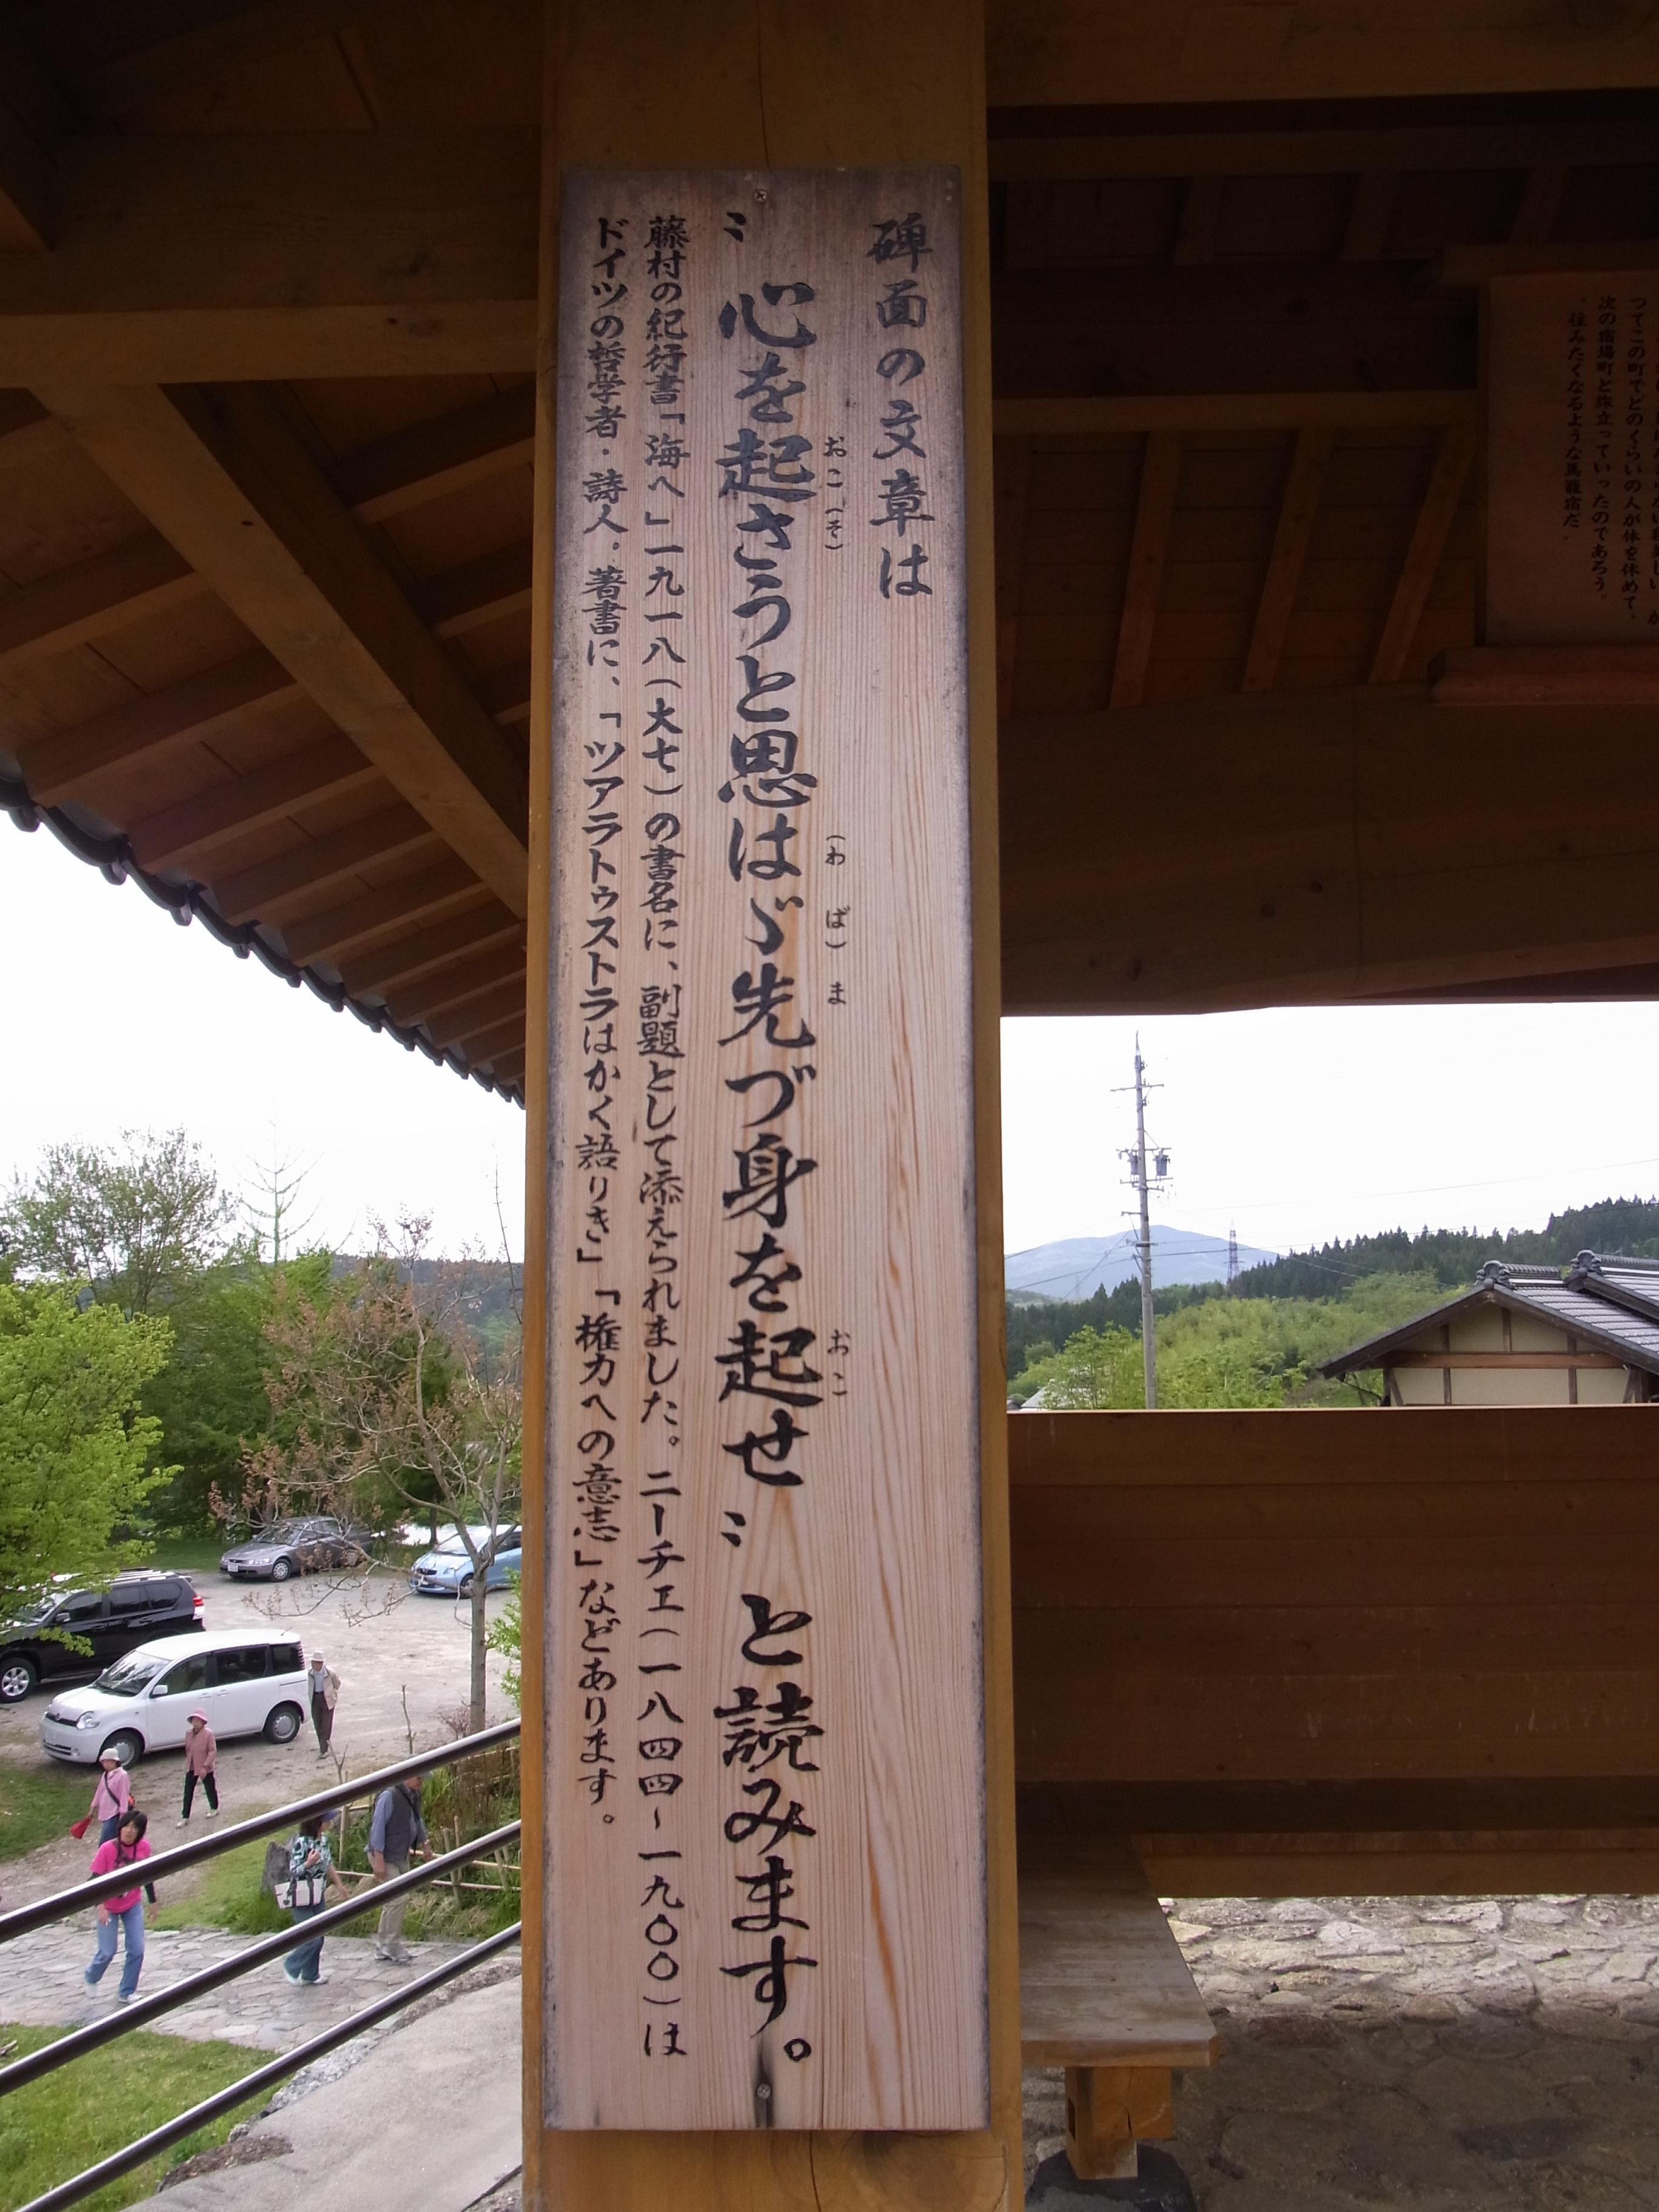 碑面の文章は
〝心を起さうと思はゞ先づ身を起せ〟と読みます。
おこ(そ)
(わば)ま
おこ
藤村の紀行書「海へ」一九一八(大七)の書名に、副題として添えられました。ニーチェ(一八四四~一九〇〇)は
ドイツの哲学者・詩人。著書に、「ツアラトゥストラはかく語りき」「権力への意志」などあります。
つてこの町でどのくらいの人が体を休めて、
次の宿場町と旅立っていったのであろう。
住みたくなるような馬籠宿だ。